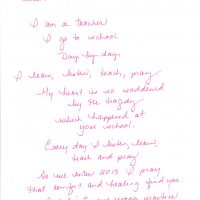 I am a teacher
I go to school
Day by day
I learn, listen, teach, pray
My heart is so saddened
by the tragedy
which happened at
your school.
Every day I listen, learn,
teach and pray
As we enter 2013 I pray
that comfort and healing find you